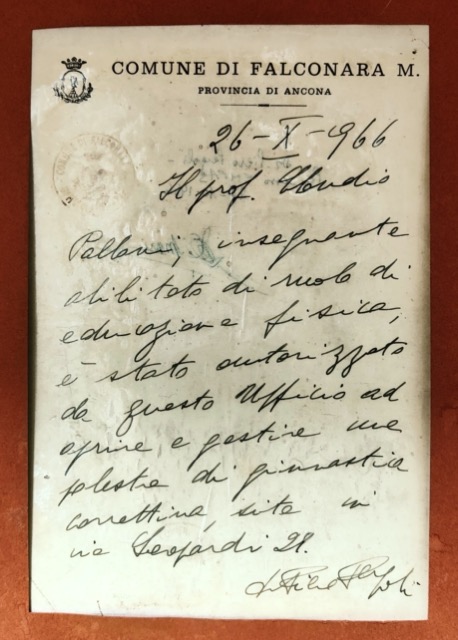 COMUNE DI FALCONARA M.
PROVINCIA DI ANCONA
26-X-1966
Il prof. Claudio
insegnante
abilitato di ruolo di
educazione fisica,
è stato autorizzato
da questo Ufficio ad
aprire e gestire una
palestra di ginnastica
correttiva, sita in
via Leopardi 28.